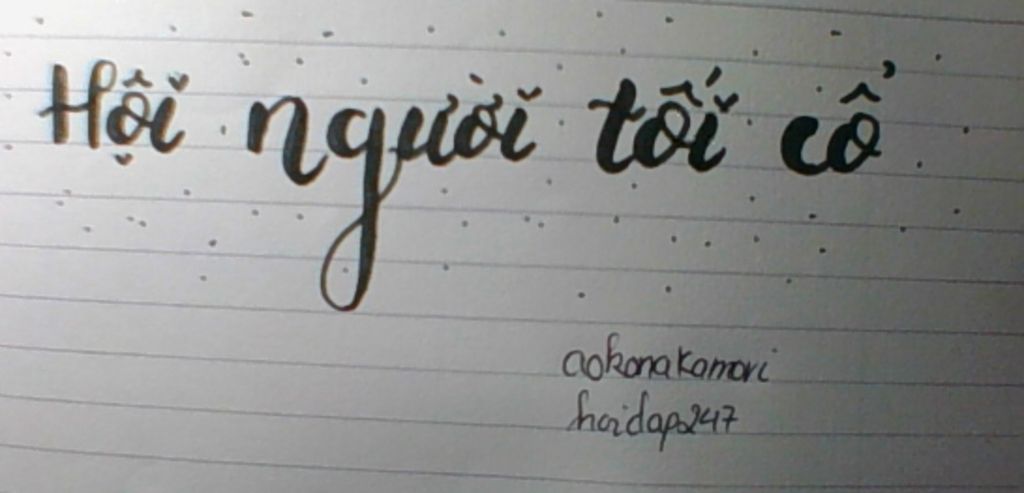 Hội người tối cổ
aokonakamori
hoidap247